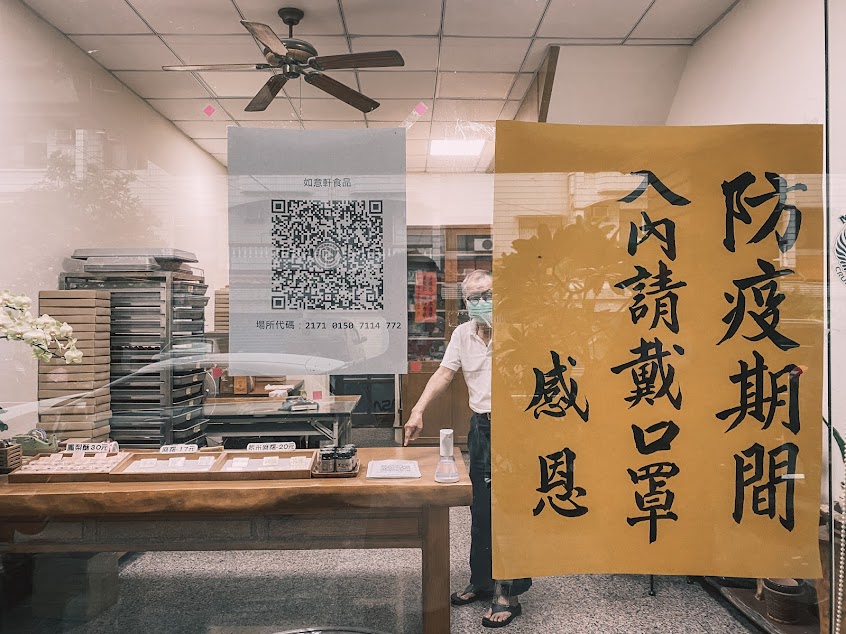 如意軒食品
場所代碼：2171 0150 7114 772
防疫期間
入內請戴口罩
感恩
鳳梨酥30元
麻糬-17元